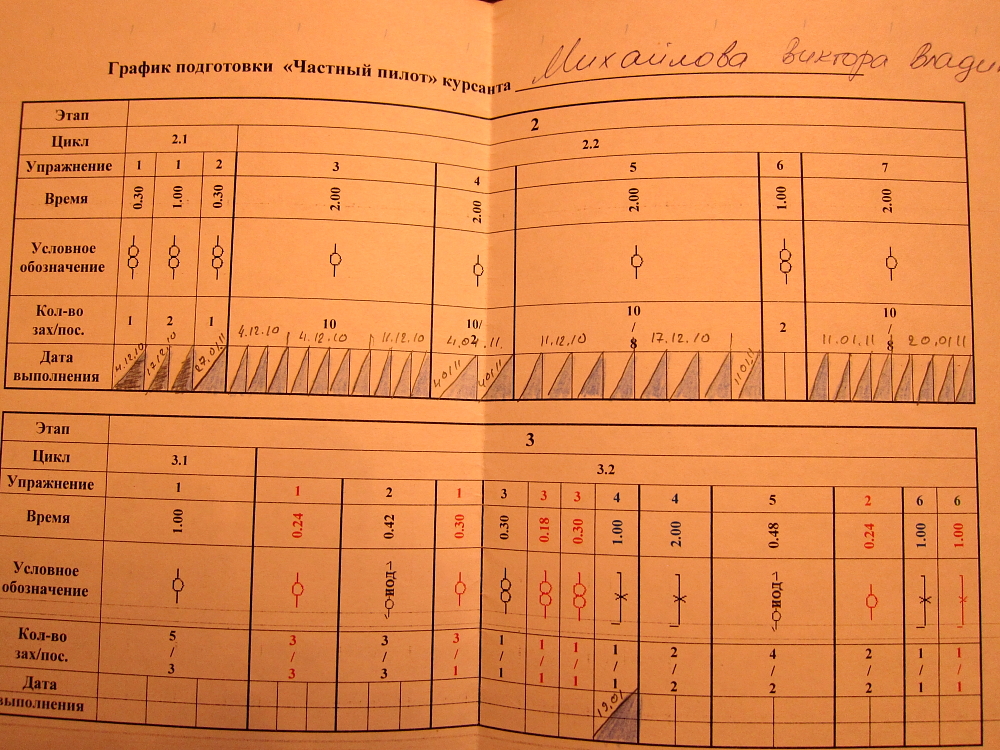 График подготовки «Частный пилот» курсанта Михайлова Виктора
Этап 2
Цикл 2.1 2.2
Упражнение 1 1 2 3 4 5 6 7
Время 0.30 1.00 0.30 2.00 2.00 2.00 1.00 2.00
Условное
обозначение
Кол-во
зах/пос. 1 2 1 10 10/2 10/8 2 10/8
4.12.10 4.12.10 11.12.10 11.12.10 17.12.10 11.01.11 20.01.11
Дата
выполнения 4.12.10 12.12.10 27.01.11 11.01.11
Этап 3
Цикл 3.1 3.2
Упражнение 1 1 2 1 3 3 3 4 4 5 2 6 6
Время 1.00 0.24 0.42 0.30 0.30 0.18 0.30 1.00 2.00 0.48 0.24 1.00 1.00
Условное
обозначение ИОД ИОД
Кол-во
зах/пос. 5/3 3/3 3/3 3/1 1/1 1/1 1/1 1/1 2/2 4/2 2/2 1/1 1/1
Дата
выполнения 19.01